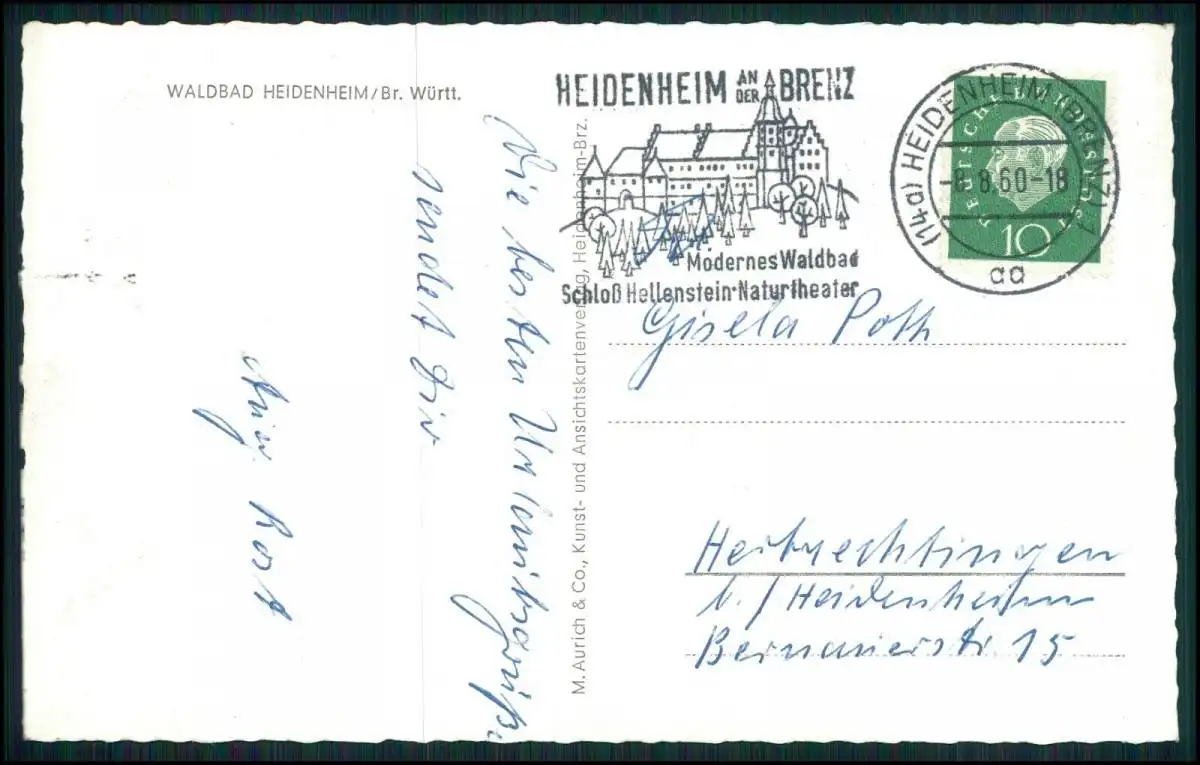 WALDBAD HEIDENHEIM/Br. Württ.
Die besten Urlaubsgrüße
sendet Dir
Rost
M. Aurich & Co., Kunst- und Ansichtskartenverlag, Heidenheim-Brz.
HEIDENHEIM AN DER BRENZ
Modernes Waldbad
Schloß Hellenstein-Naturtheater
(14a) HEIDENHEIM (BRENZ) 1
-8.8.60-18
aa
DEUTSCHE BUNDESPOST
10
Gisela Poth
Herbrechtingen
b./Heidenheim
Bernauerstr. 15